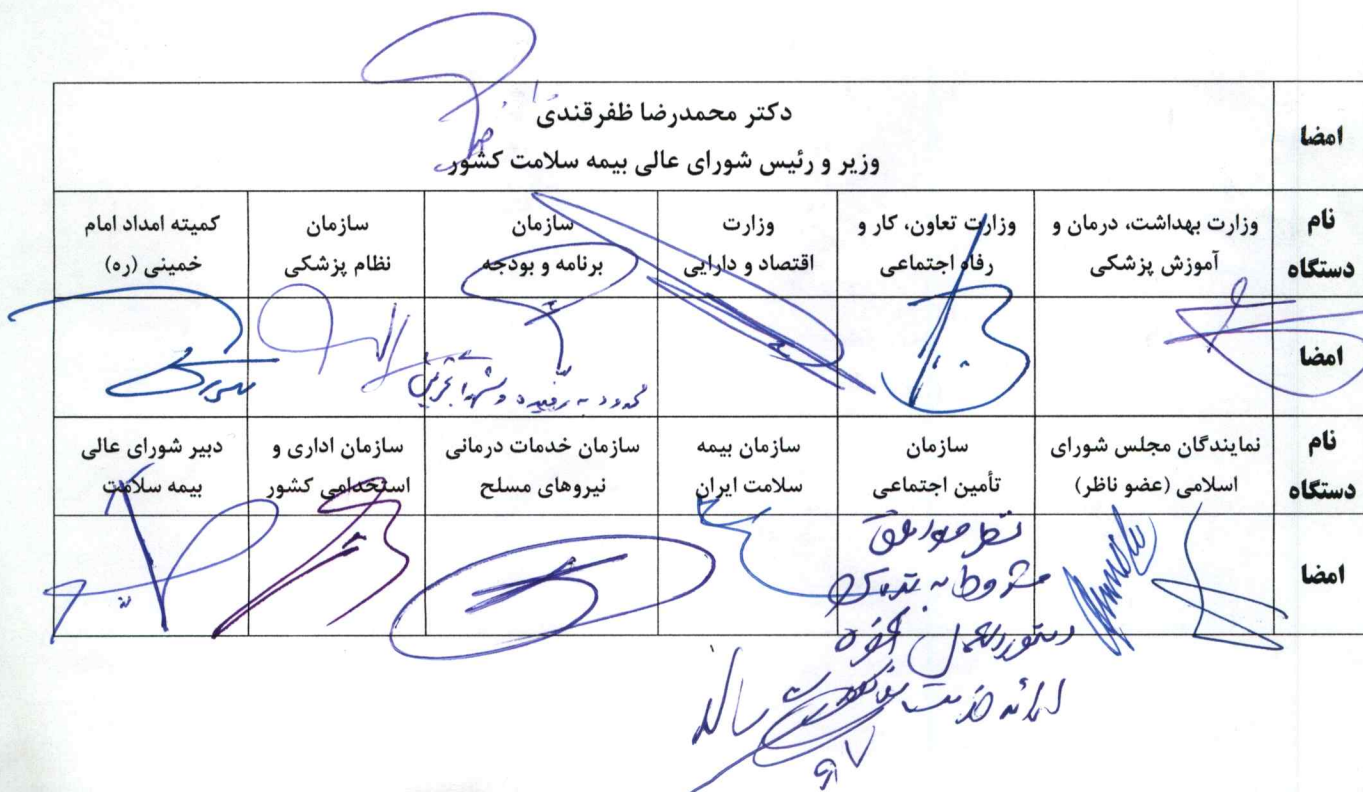 امضا
دکتر محمدرضا ظفرقندی
وزیر و رئیس شورای عالی بیمه سلامت کشور
نام دستگاه
وزارت بهداشت، درمان و آموزش پزشکی
وزارت تعاون، کار و رفاه اجتماعی
وزارت اقتصاد و دارایی
سازمان برنامه و بودجه
سازمان نظام پزشکی
کمیته امداد امام خمینی (ره)
امضا
محدود به
نام دستگاه
نمایندگان مجلس شورای اسلامی (عضو ناظر)
سازمان تأمین اجتماعی
سازمان بیمه سلامت ایران
سازمان خدمات درمانی نیروهای مسلح
سازمان اداری و استخدامی کشور
دبیر شورای عالی بیمه سلامت
امضا
مشروط به
دستورالعمل
ارائه خدمت